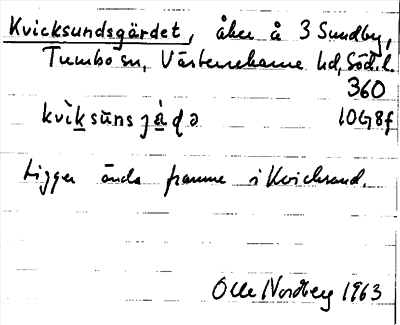 Kvicksundsgärdet, åker å 3 Sundby,
Tumbo sn, Västerrekarne hd, Söd.l.
360
kvìksùnsjàɖə 10G8f
Ligger ända framme i Kvicksund.
Olle Nordberg 1963